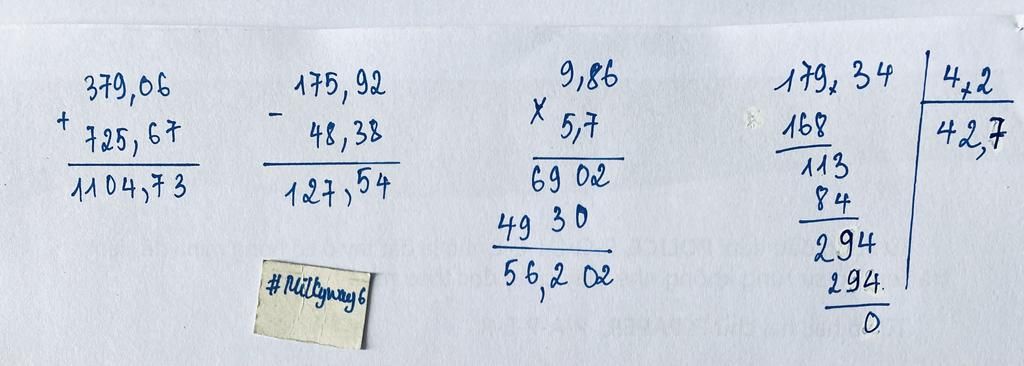 379,06
+
725,67
1104,73
175,92
-
48,38
127,54
9,86
x
5,7
6902
4930
56,202
179,34
4,2
168
42,7
113
84
294
294
0
#Milkyway6